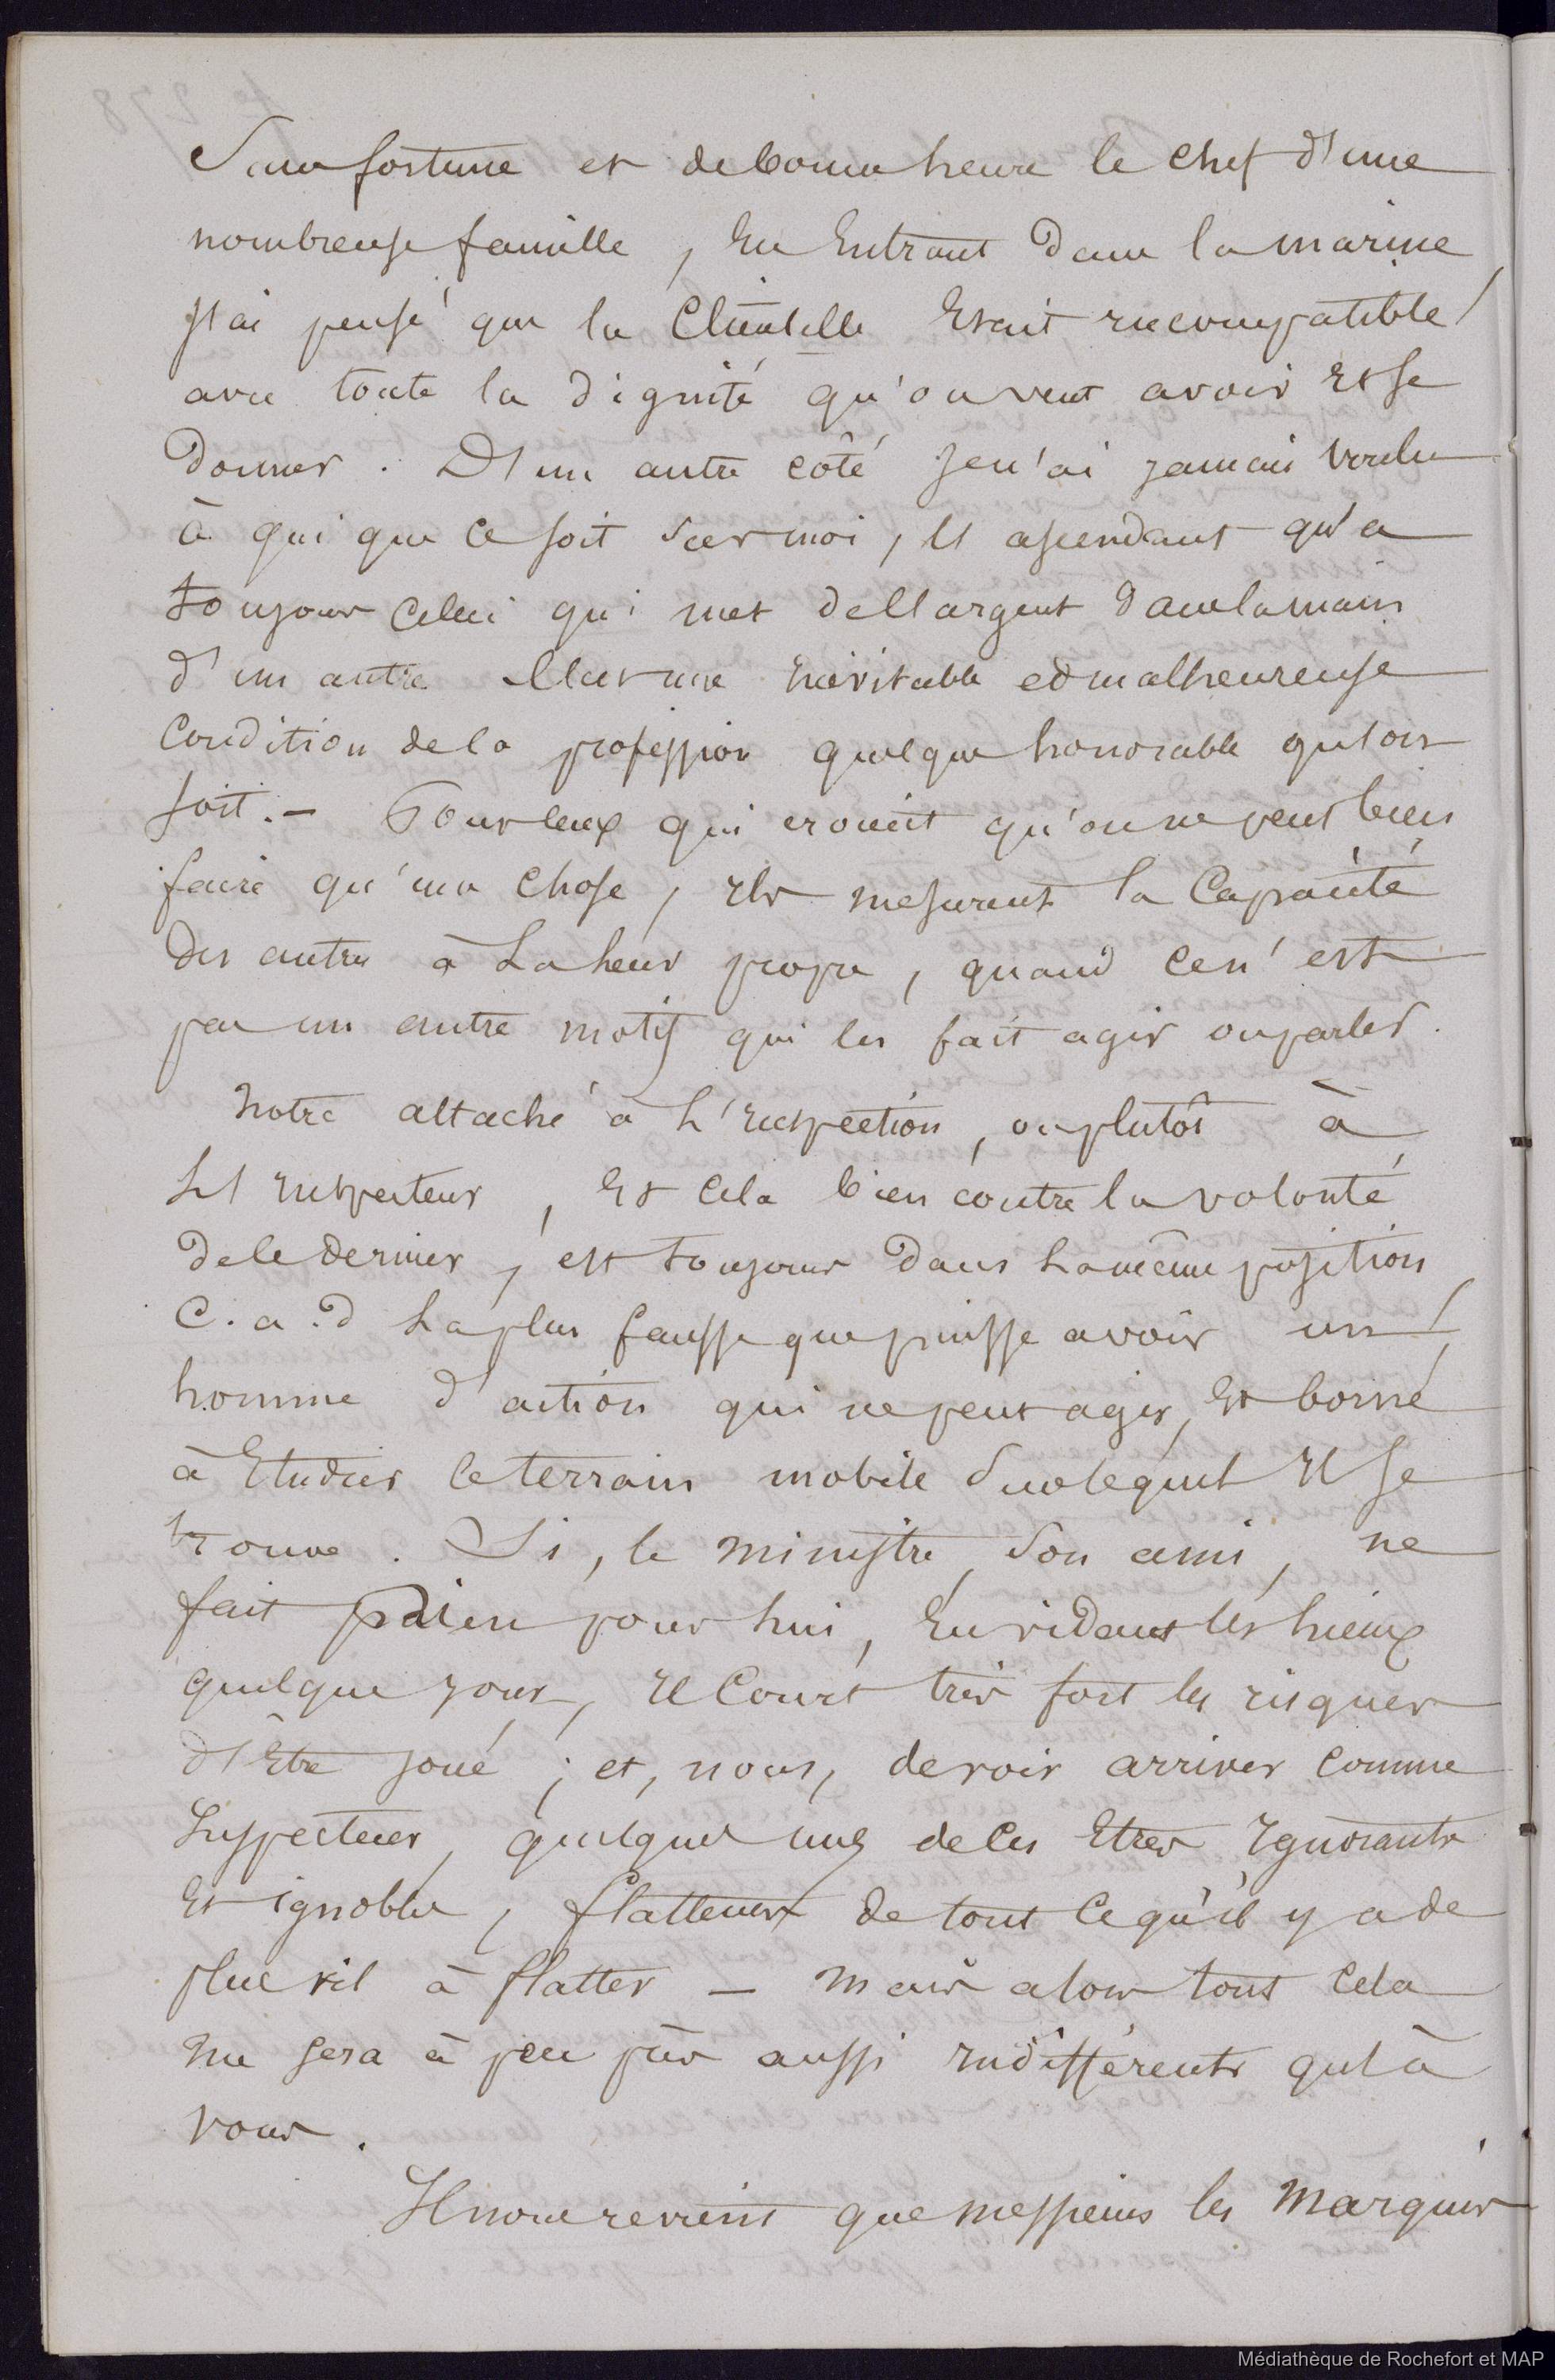 Sans fortune et de bonne heure le chef d'une
nombreuse famille, En Entrant Dans la marine
J'ai pensé que la Clientelle Etait incompatible
avec toute la dignité qu'on veut avoir Et se
Donner. D'un autre côté je n'ai jamais voulu
à qui que ce soit sur moi, l'ascendant qu'a
toujours celui qui met de l'argent dans la main
d'un autre. C'est une inévitable et malheureuse
Condition de la profession quelque honorable qu'on
soit. — Pour ceux qui croient qu'on ne peut bien
faire qu'une chose, Ils mesurent la Capacité
des autres à La leur propre, quand ce n'est
pas un autre motif qui les fait agir ou parler.
Notre attaché à L'Inspection, ou plutôt à
L'Inspecteur, Et Cela bien contre la volonté
de ce dernier, est toujours Dans La même position
C. a. d La plus fausse que puisse avoir un
homme d'action qui ne peut agir, Et borné
à Etudier le terrain mobile sur lequel Il se
trouve. Si, le ministre, son ami, ne
fait rien pour lui, En vidant les lieux
quelque jour, Il Court très fort les risques
d'Etre joué ; et, nous, de voir arriver comme
Inspecteur, quelques uns de ces Etres Ignorants
Et ignobles, flatteurs de tout ce qu'il y a de
plus vil à flatter — Mais alors tout Cela
me sera à peu près aussi indifférents qu'à
vous.
Il nous revient que messieurs les Marquis
Médiathèque de Rochefort et MAP